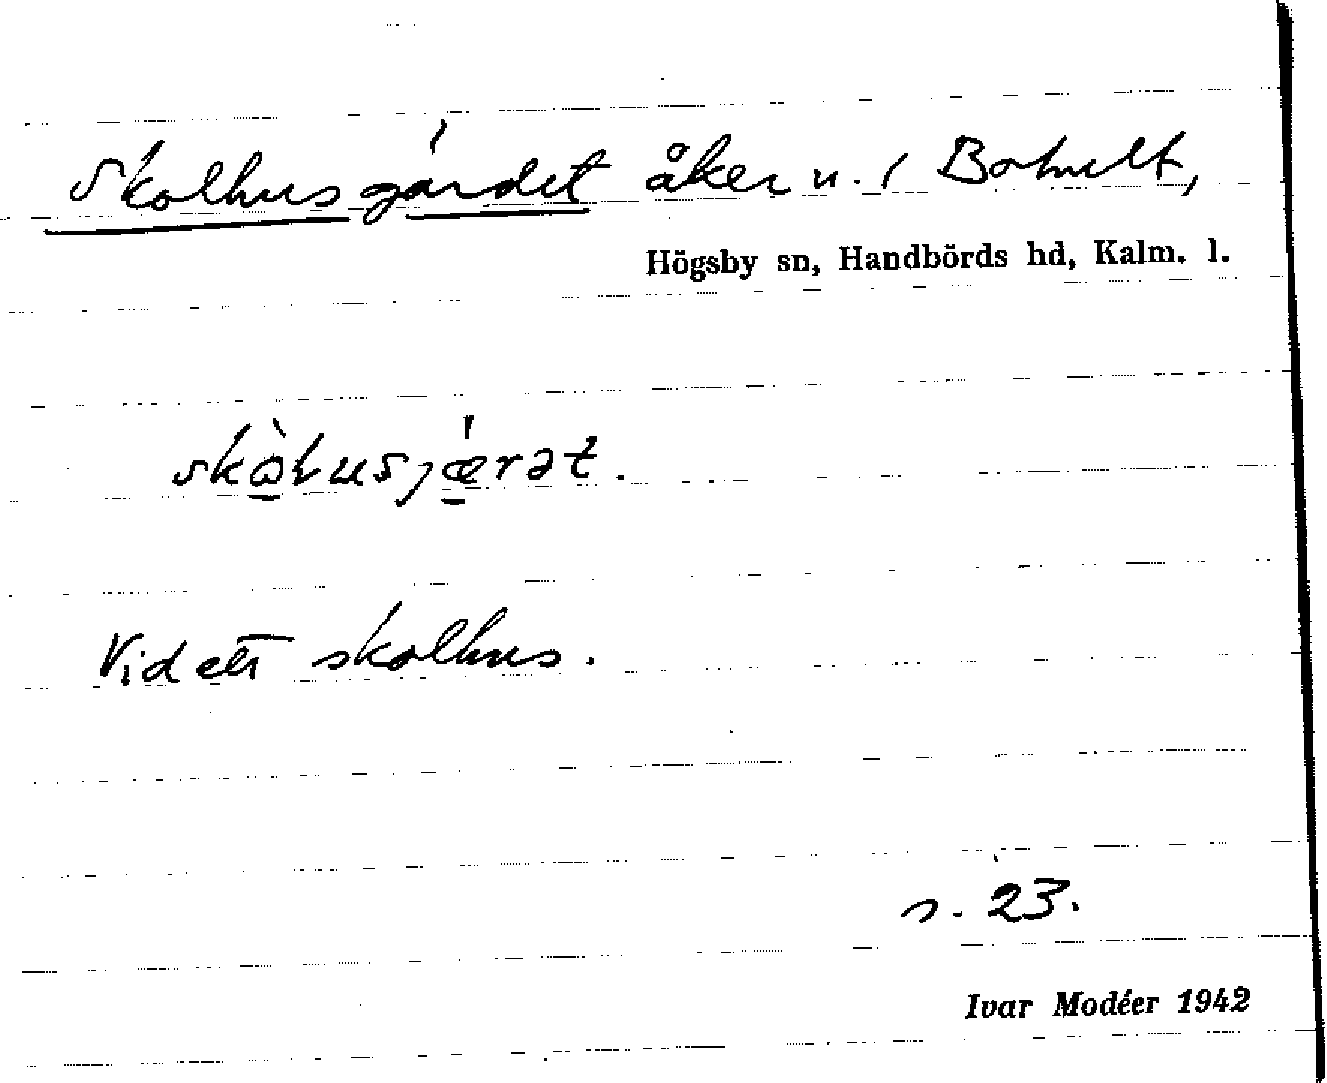 Skolhusgärdet åker u. / Bohult,
Högsby sn, Handbörds hd, Kalm. l.
Vid ett skolhus.
s. 23.
Ivar Modéer 1942